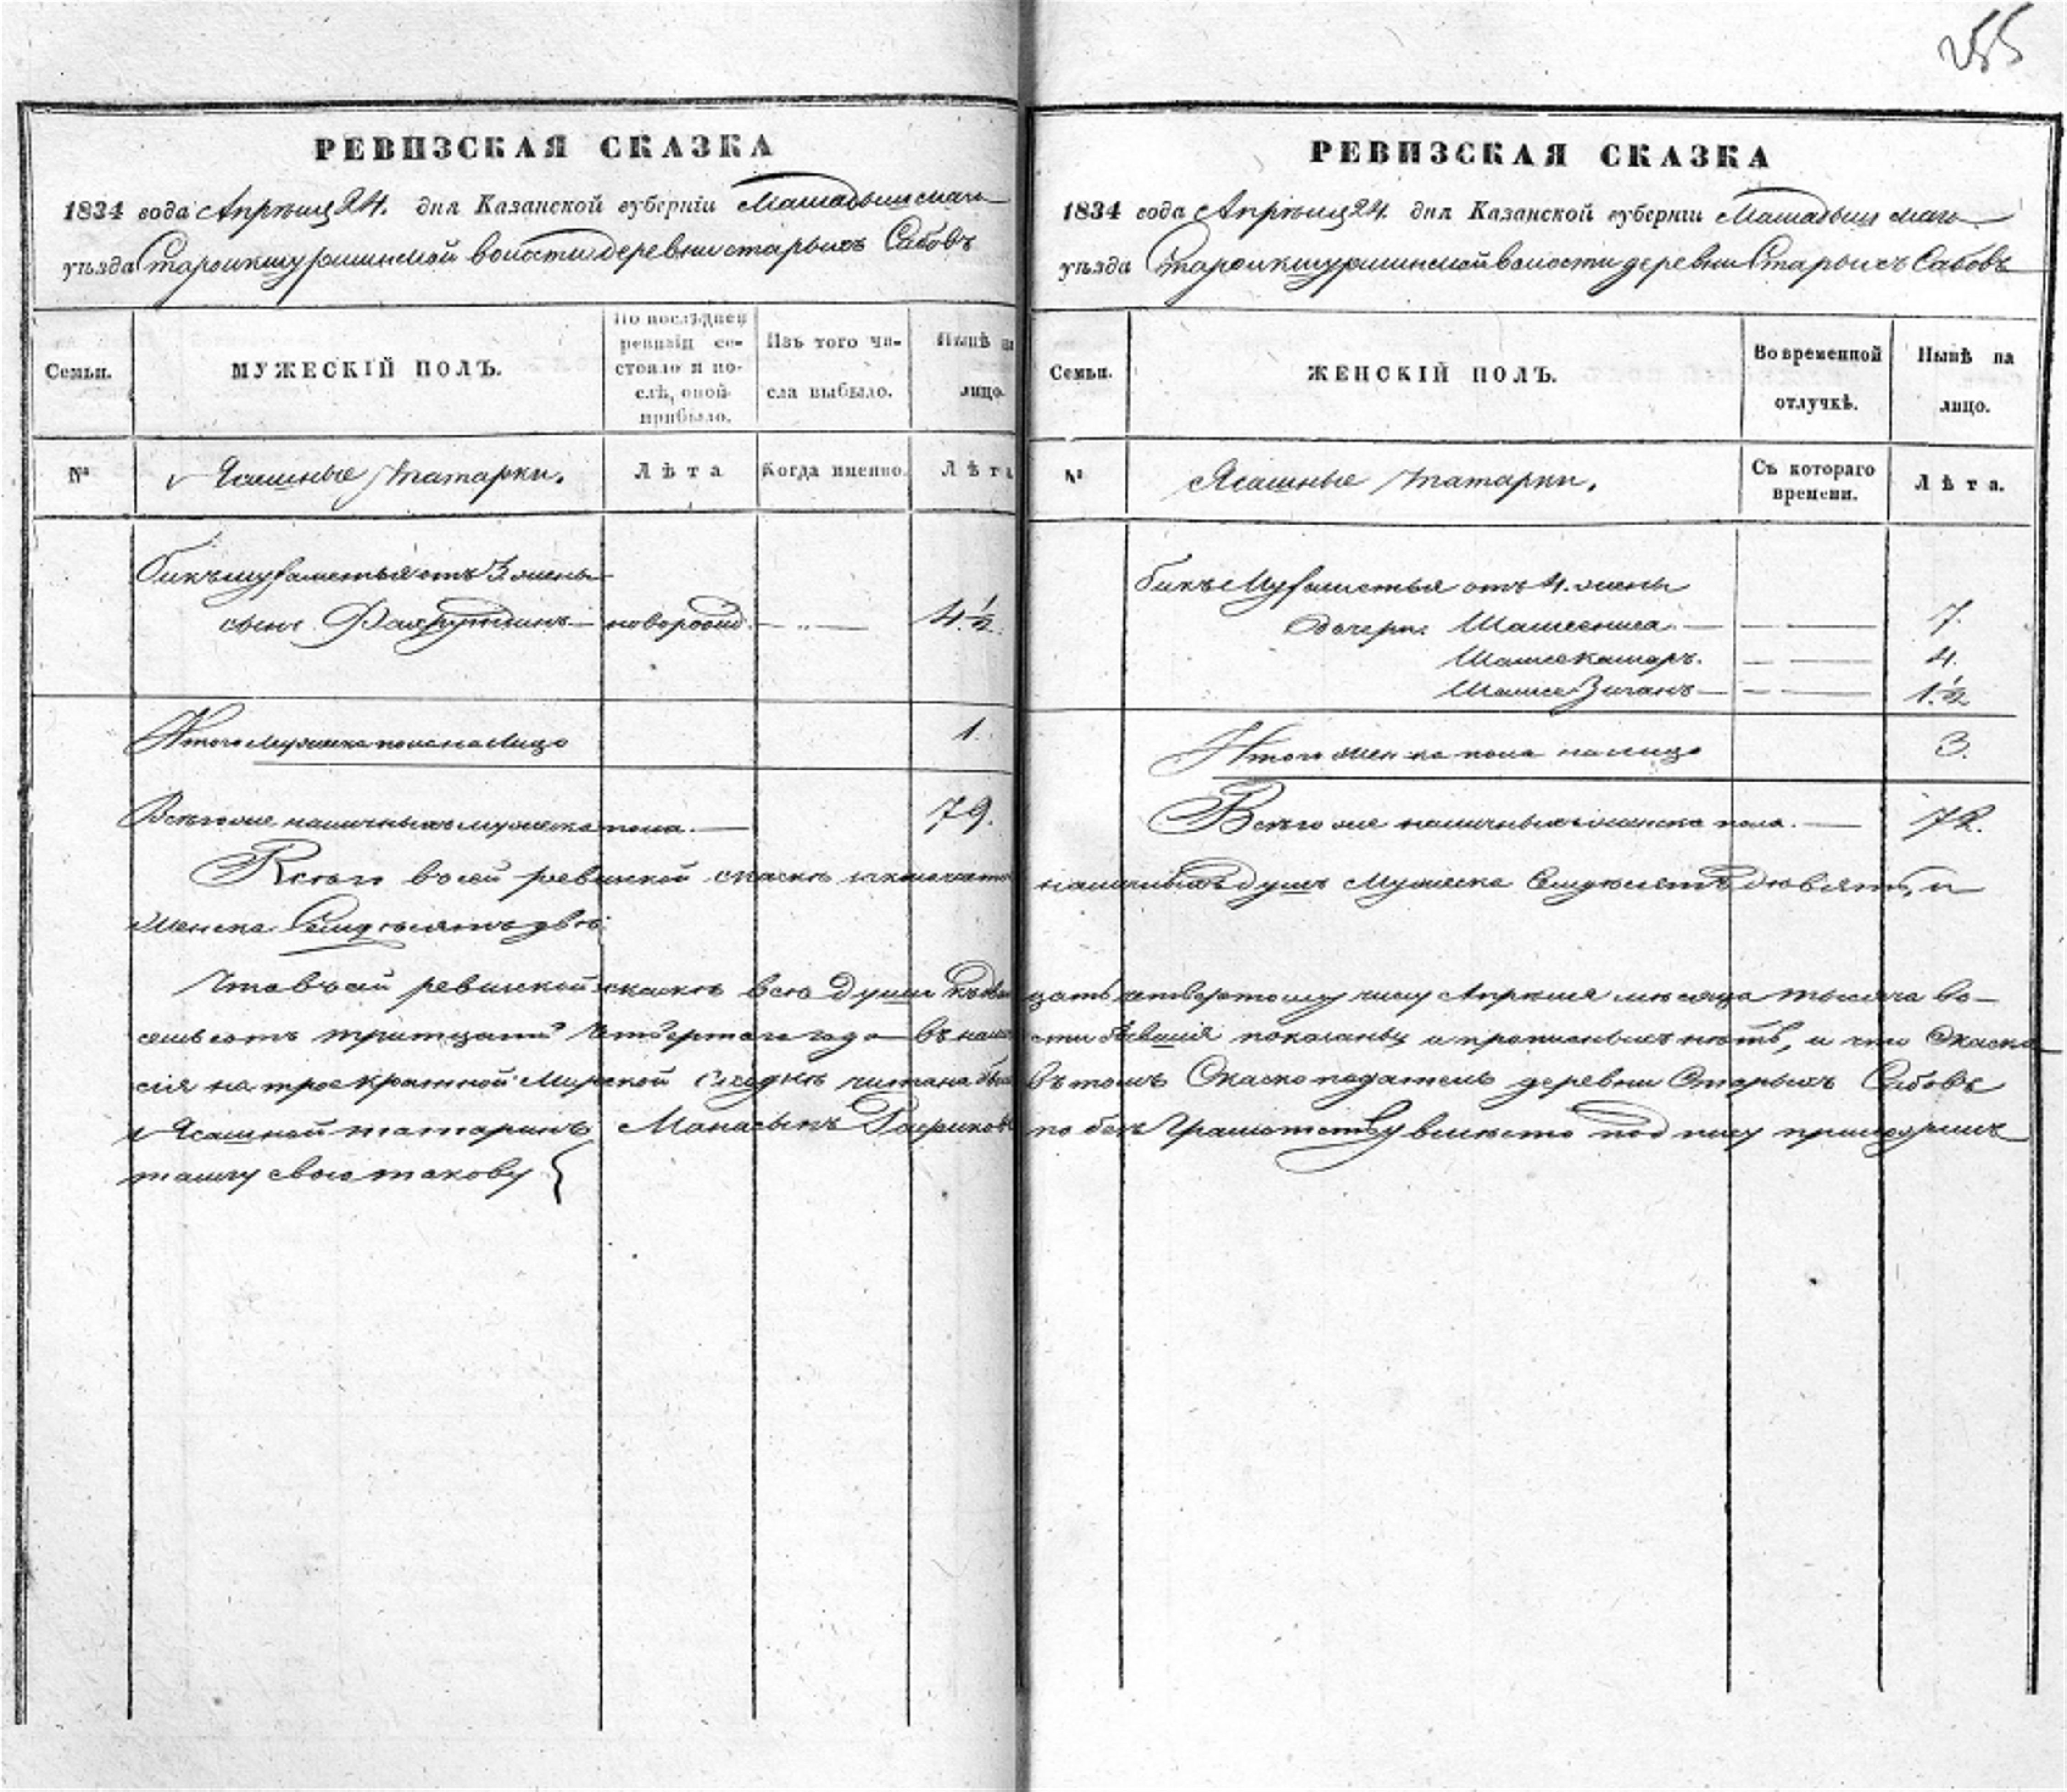 255
РЕВИЗСКАЯ СКАЗКА
1834 года Апрѣля 24. дня Казанской губерніи Мамадышскаго
уѣзда Староикшурминской волости деревни старыхъ Сабовъ
Семьи.
МУЖЕСКІЙ ПОЛЪ.
По послѣдней ревизіи состояло и послѣ, оной прибыло.
Изъ того числа выбыло.
Нынѣ на лицо.
№
Ясашные татарки.
Лѣта
Когда именно.
Лѣта
от 3 жены
сынъ Фахрутдинъ — новорожд. — 4 ½
Итого Мужеска пола на Лицо 1.
Всего же наличныхъ мужеска пола. — 79.
РЕВИЗСКАЯ СКАЗКА
1834 года Апрѣля 24. дня Казанской губерніи Мамадышскаго
уѣзда Староикшурминской волости деревни Старыхъ Сабовъ
Семьи.
ЖЕНСКІЙ ПОЛЪ.
Во временной отлучкѣ.
Нынѣ на лицо.
№
Ясашные татарки.
Съ котораго времени.
Лѣта.
отъ 4. жены
Дочери: 7.
Шамсекамаръ. — 4.
1.½
Итого женска пола на лицо 3.
Всего же наличныхъ женска пола. — 72.
Всего в сей ревиской скаскѣ наличныхъ душъ Мужеска Семдесятъ девять, и
Женска Семдесятъ двѣ
Что в сей ревиской скаскѣ всѣ души къ двадцать четвертому числу Апрѣля мѣсяца тысяча во-
семь сотъ тритцать четвертаго года въ показаны и прописныхъ нѣтъ, и что Скаска
сія на троекратной Мирской сходкѣ читана была въ томъ Скаскоподатель деревни Старыхъ Сабовъ
Ясашной татаринъ по безъ Грамотству вмѣсто подписи приложилъ
тамгу свою такову